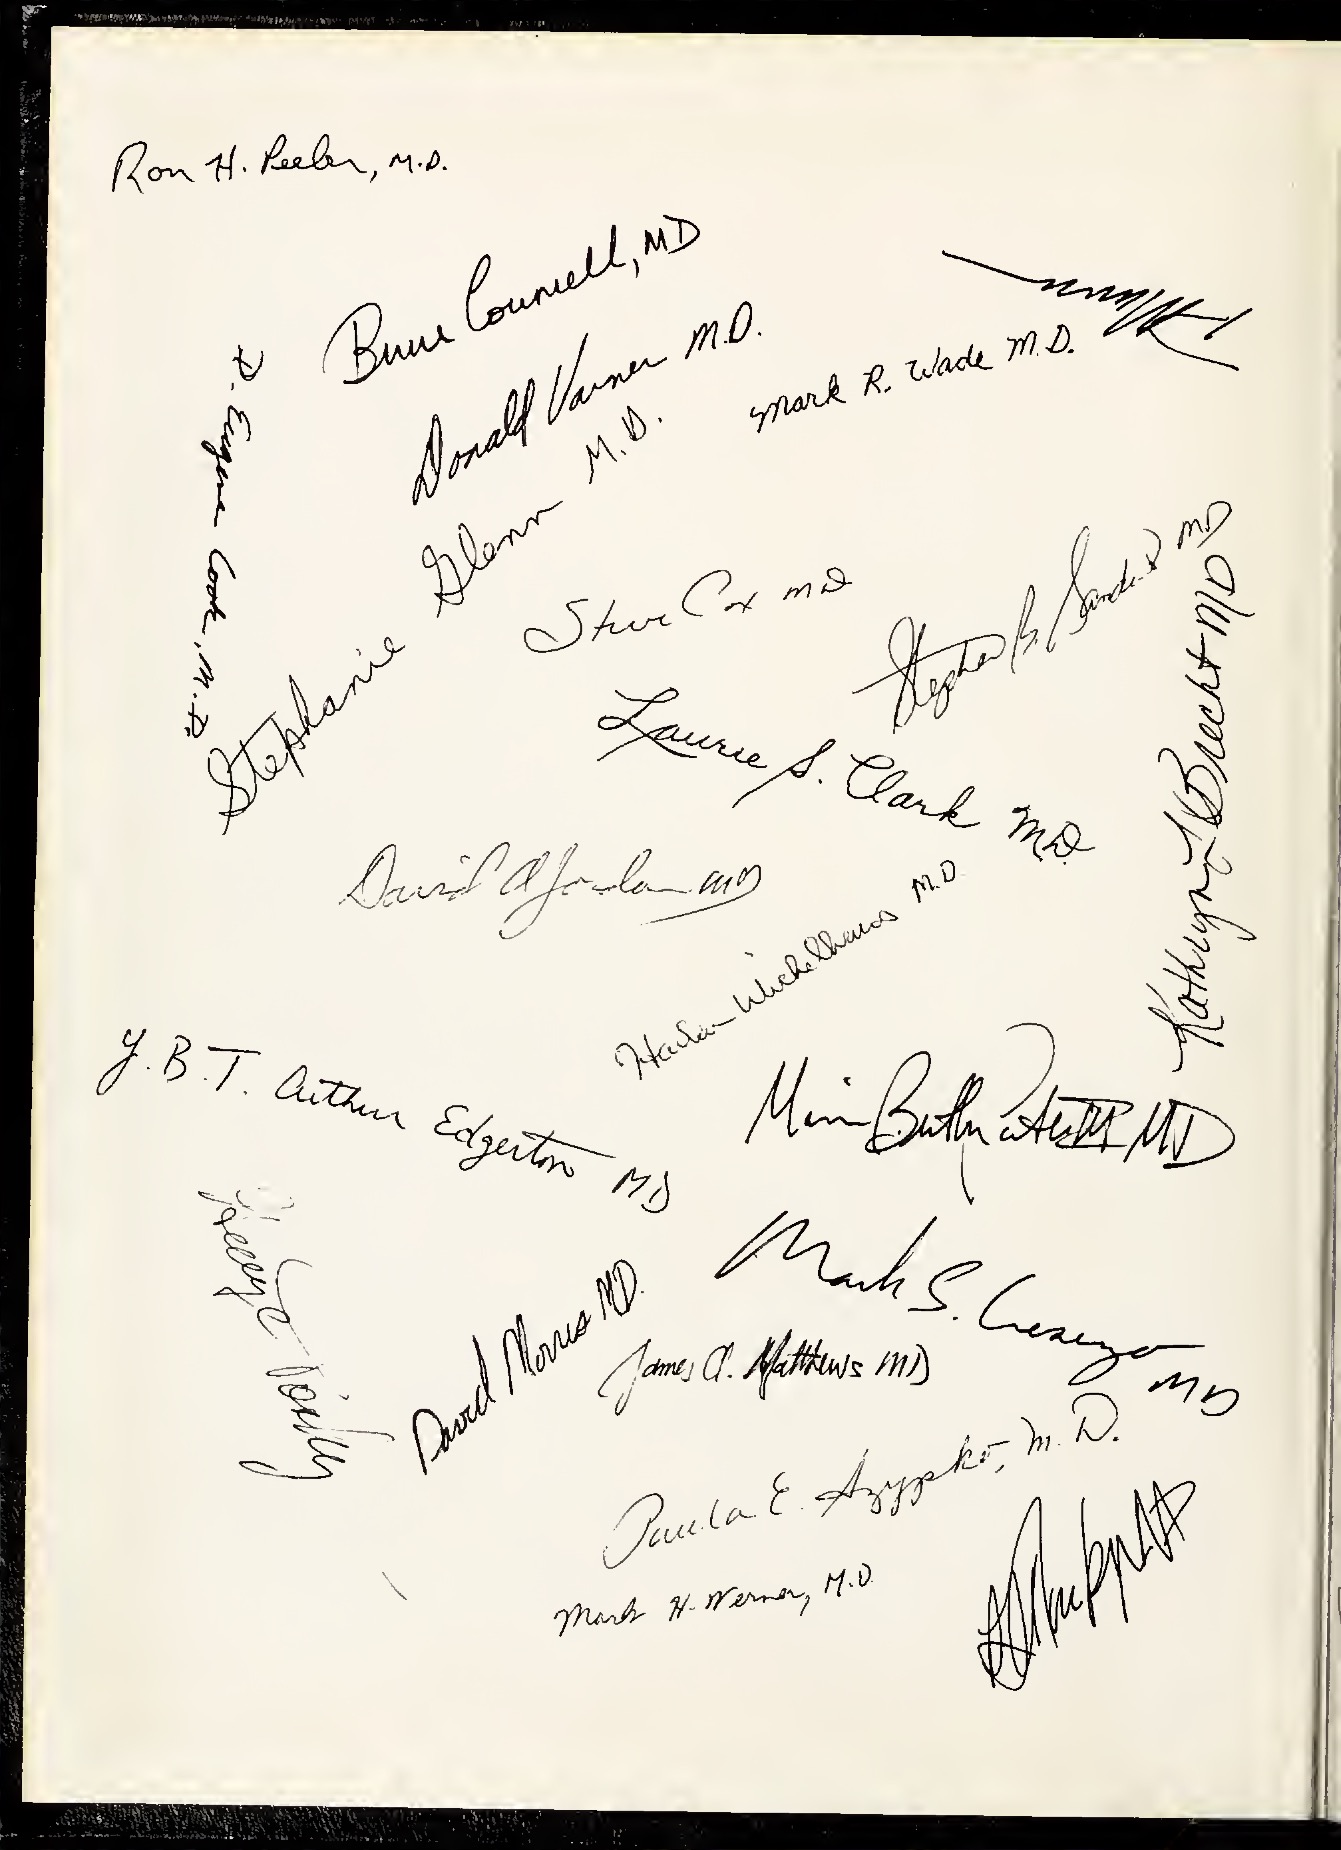 Ron H. Peeler, M.D.
Bruce Counsell, MD
Donald Varner M.D.
Mark R. Wade M.D.
R. Eugene Cook, M.D.
Stephanie Glenn M.D.
Steve Cox MD
Stephen B. Sanders MD
Laurie S. Clark MD
Kathryn Brecht MD
David A Jordan MD
Harlan Wickelhaus M.D.
Y.B.T. Arthur Edgerton MD
MD
David Morris MD.
Mark S. MD
James A. Matthews MD
Paula E. M.D.
Mark H. Werner, M.D.